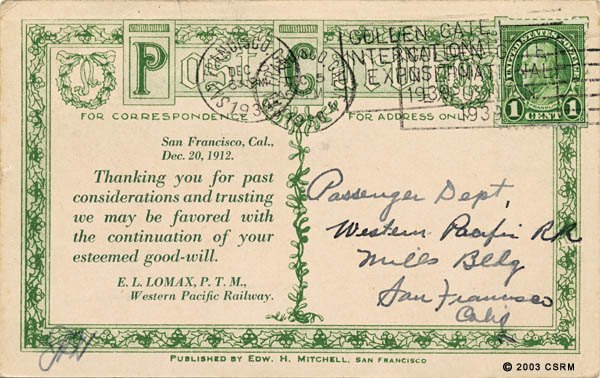 Post Card
SAN FRANCISCO, CAL.
DEC
193
GOLDEN GATE
INTERNATIONAL
EXPOSITION
1939
UNITED STATES POSTAGE
1 1
CENT
FOR CORRESPONDENCE
FOR ADDRESS ONLY
San Francisco, Cal.,
Dec. 20, 1912.
Thanking you for past
considerations and trusting
we may be favored with
the continuation of your
esteemed good-will.
E. L. LOMAX, P. T. M.,
Western Pacific Railway.
Passenger Dept,
Western Pacific RR
Mills Bldg
San Francisco
Calif
PUBLISHED BY EDW. H. MITCHELL, SAN FRANCISCO
© 2003 CSRM